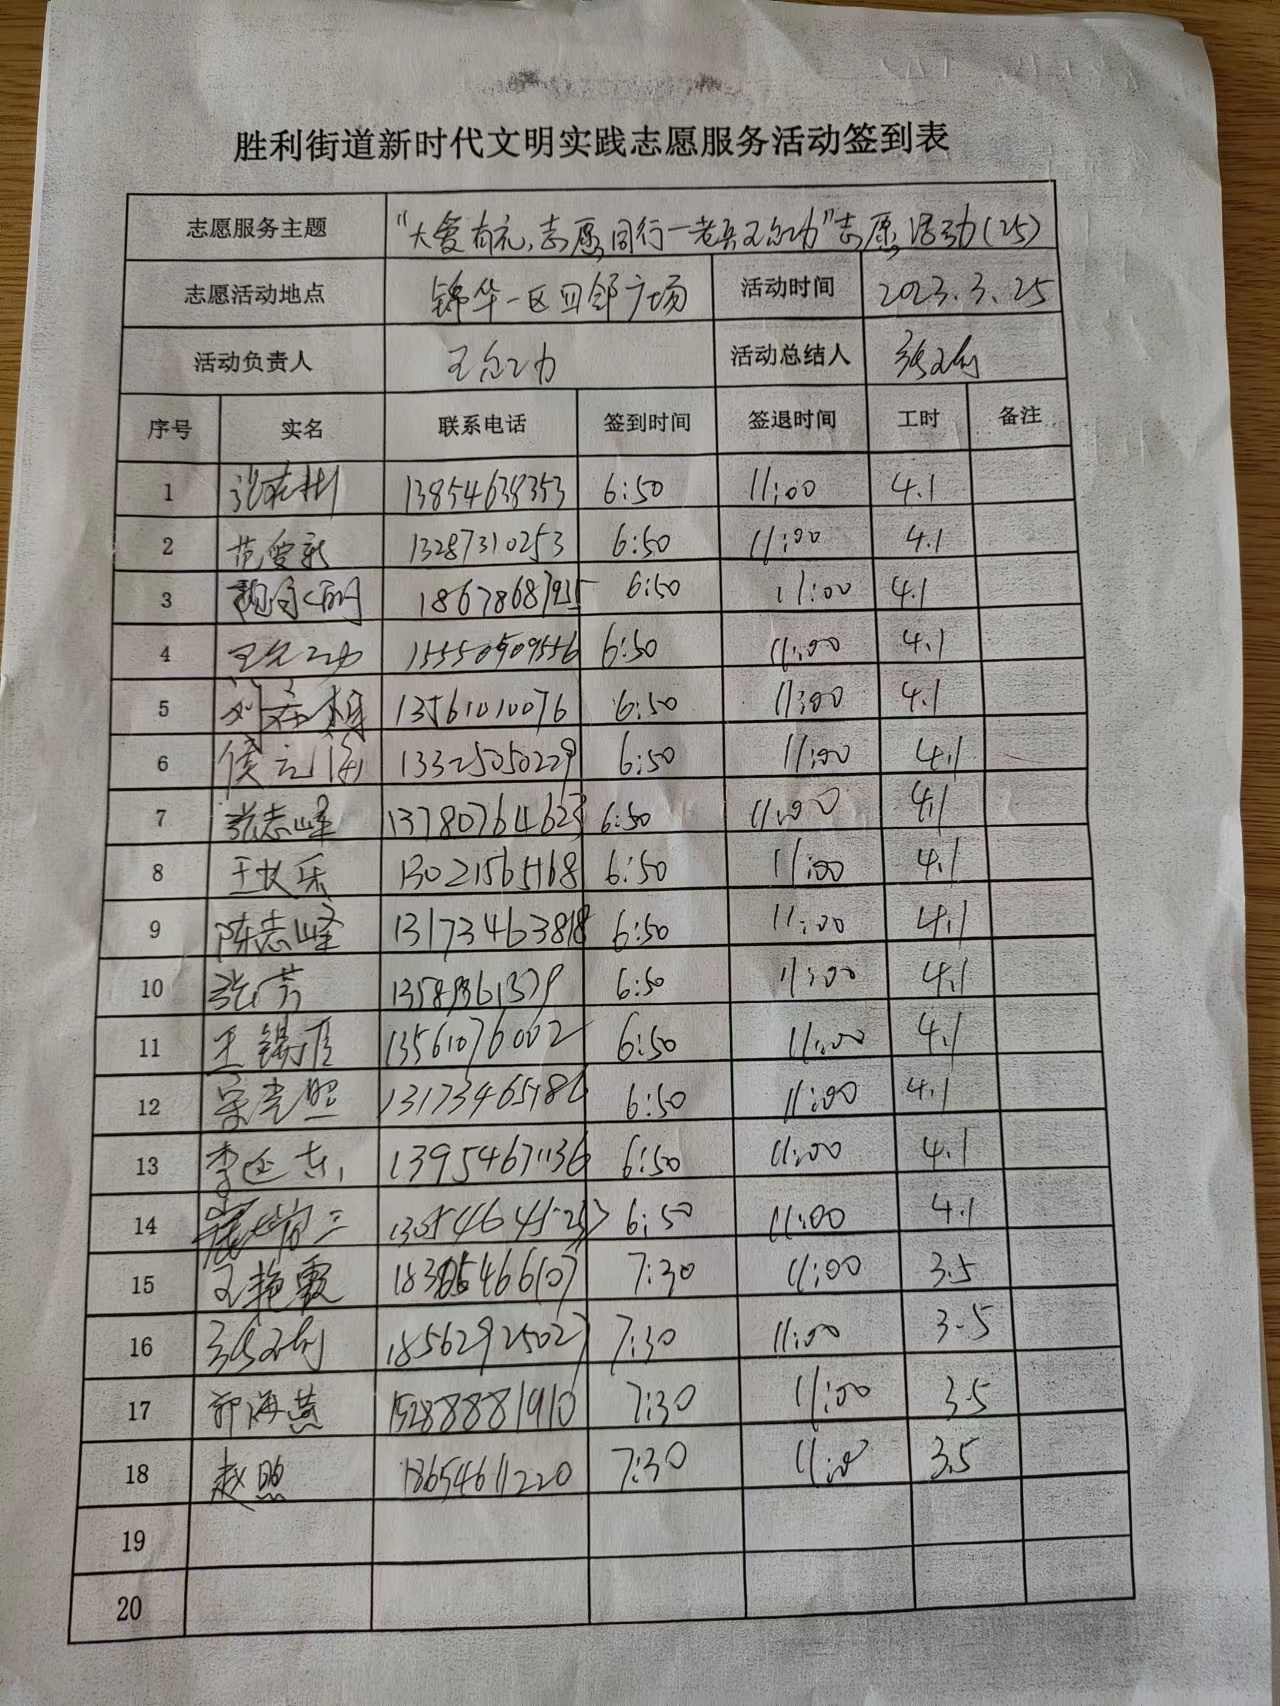 胜利街道新时代文明实践志愿服务活动签到表
志愿服务主题 "大爱有元,志愿同行一老兵王允功"志愿活动(25)
志愿活动地点 锦华一区四邻广场 活动时间 2023.3.25
活动负责人 王允功 活动总结人
序号 实名 联系电话 签到时间 签退时间 工时 备注
1 13854638353 6:50 11:00 4.1
2 范爱新 13287310253 6:50 11:00 4.1
3 6:50 11:00 4.1
4 王允功 15550909556 6:50 11:00 4.1
5 13561010076 6:50 11:00 4.1
6 侯元海 13325050229 6:50 11:00 4.1
7 张志峰 13780764623 6:50 11:00 4.1
8 王长乐 13021565168 6:50 11:00 4.1
9 陈志峰 13173463818 6:50 11:00 4.1
10 张芳 6:50 11:00 4.1
11 王锡 13561076002 6:50 11:00 4.1
12 宋光照 13173465186 6:50 11:00 4.1
13 李廷 13954671136 6:50 11:00 4.1
14 6:50 11:00 4.1
15 王艳霞 7:30 11:00 3.5
16 18562925027 7:30 11:00 3.5
17 郭海燕 15288881910 7:30 11:00 3.5
18 赵照 18654611220 7:30 11:00 3.5
19
20